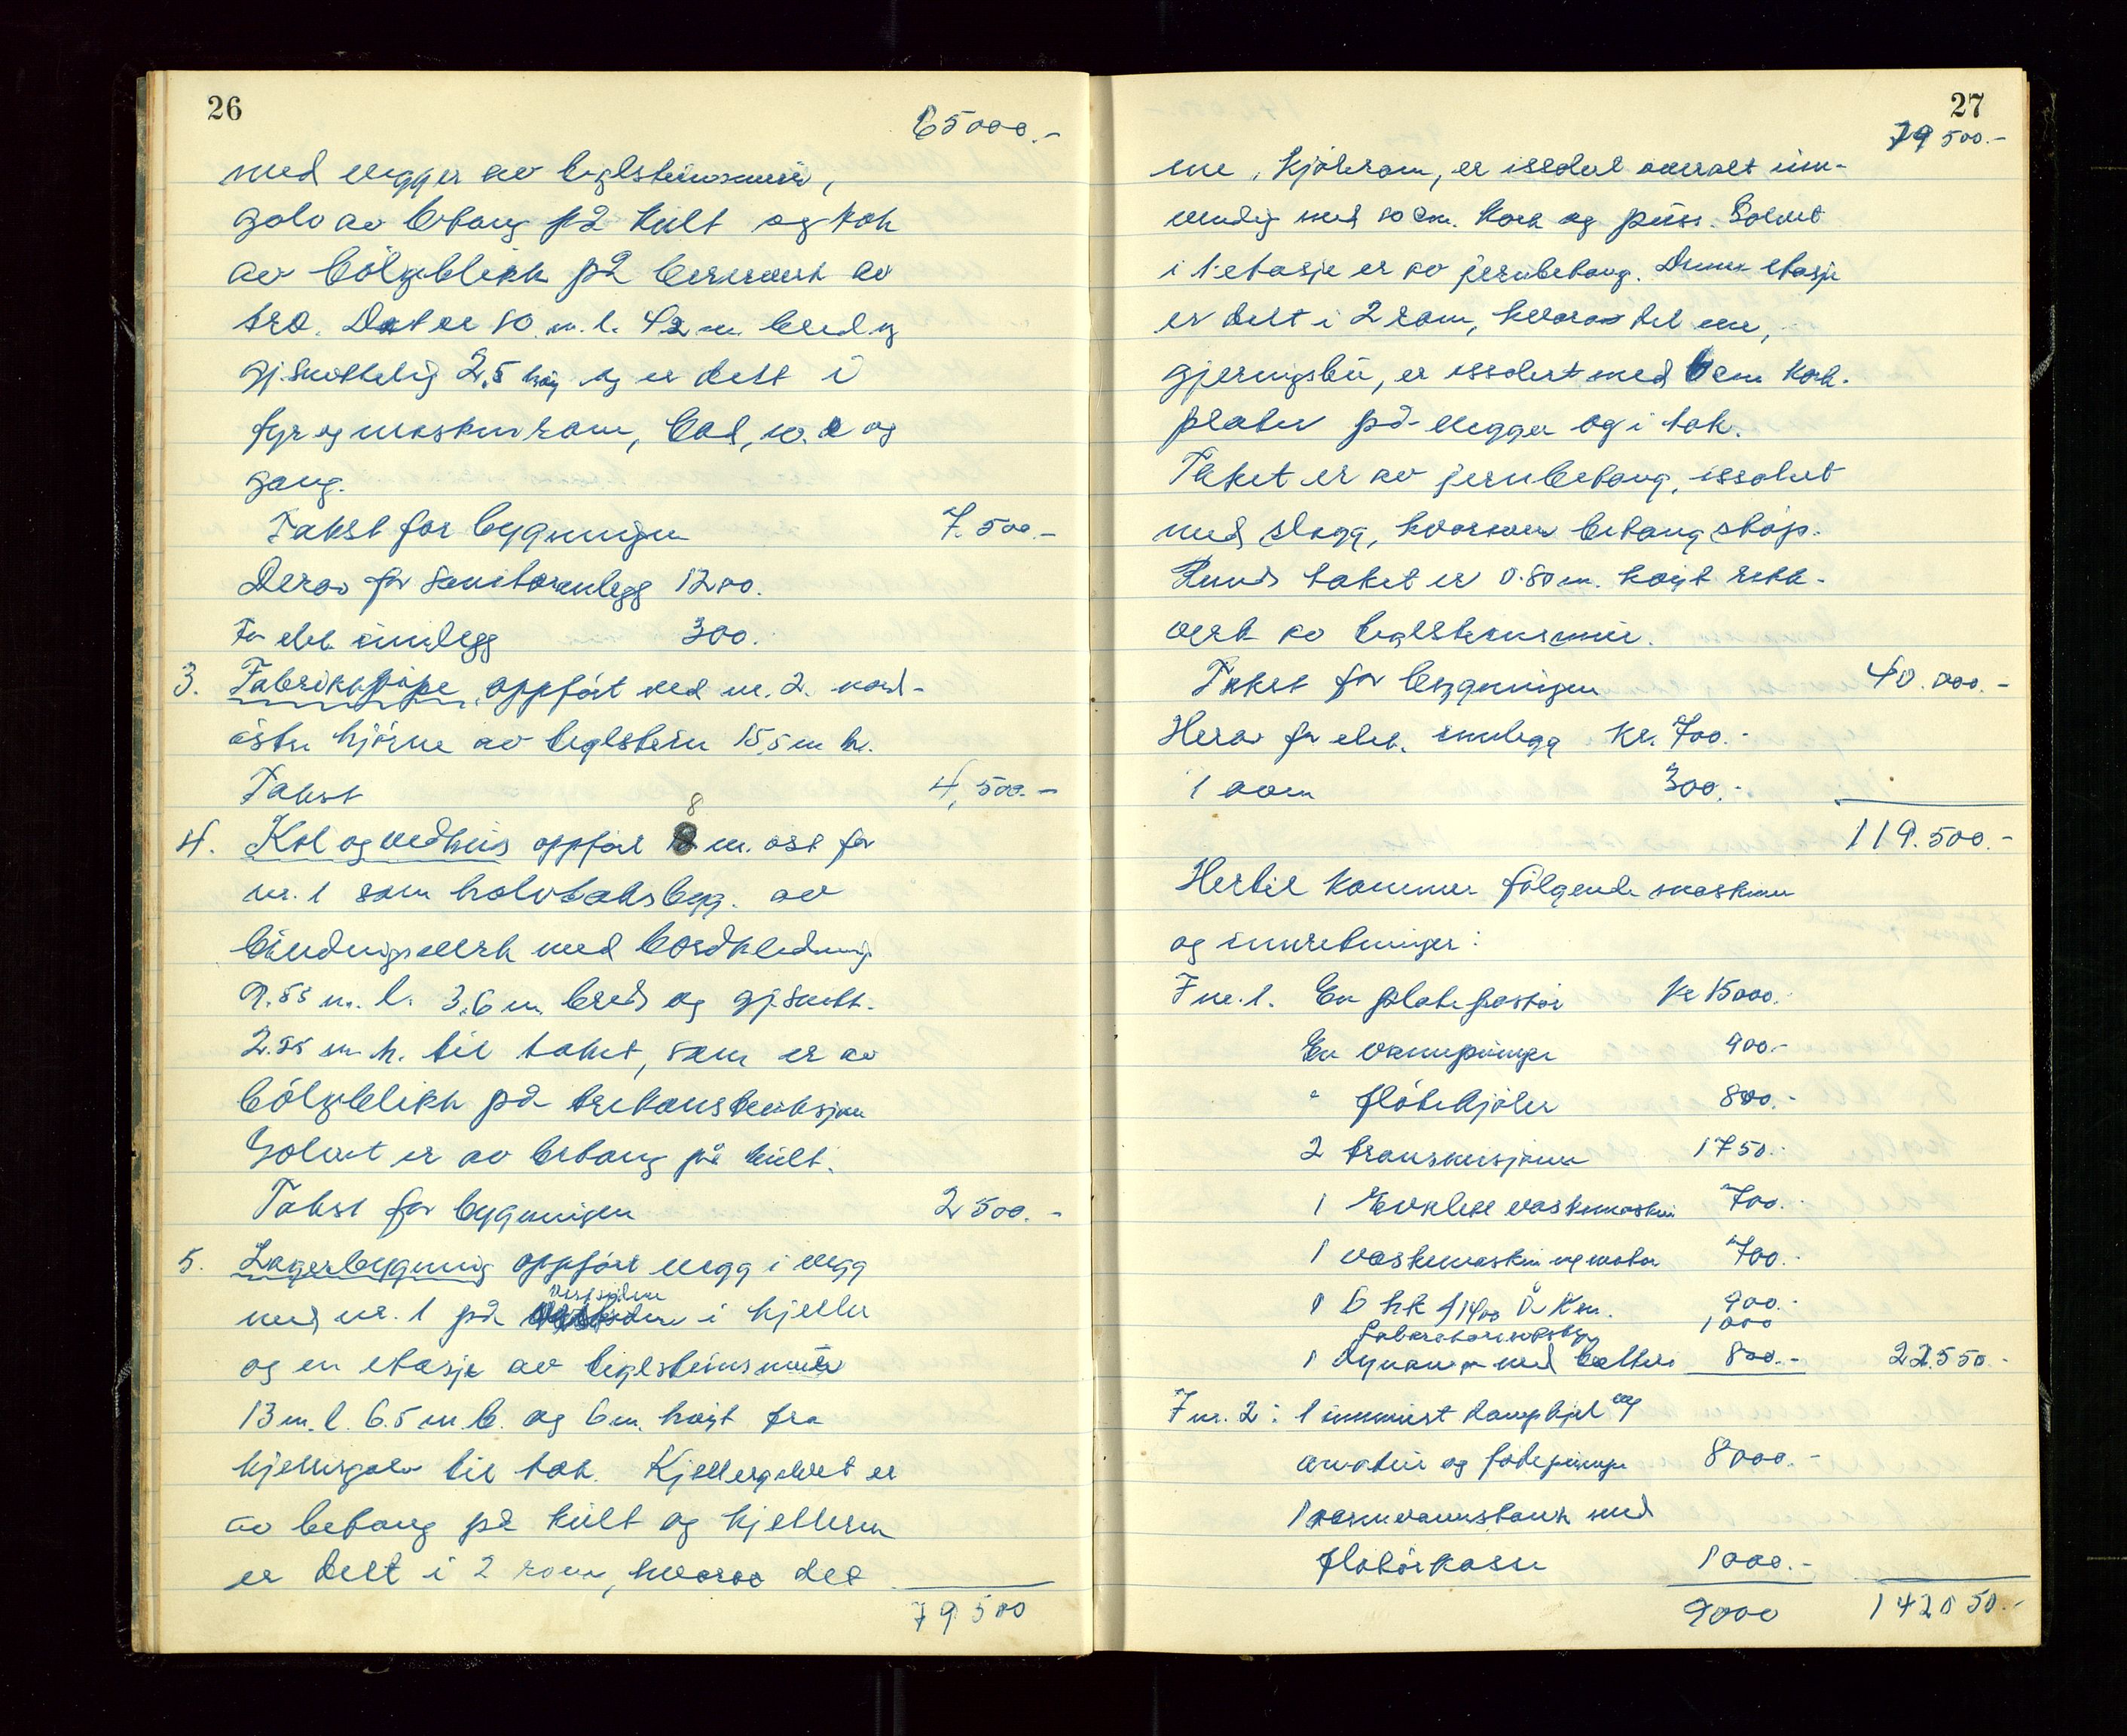 26
65000.-
med vegger av teglsteinsmur,
golv av betong på kult og tak
av bölgeblikk på bererverk av
tre. Det er 10 m. l. 4,2 m. bred og
gj.snittelig 2,5 høg og er delt i
fyr og maskinrom, bad, w.c og
gang.
Takst for bygningen 7.500.-
Derav for sanitæranlegg 1200.
For elek. innlegg 300.
3. Fabrikkpipe, oppfört ved nr. 2. nord-
östre hjörne av teglstein 15,5 m h.
Takst 4,500.-
8
4. Kol og vedhus oppfört 8 m. öst for
nr. 1 som halvtaksbygg. av
bindingsverk med bordkledning
9.55 m. l. 3.6 m. bred og gj.snitt.
2.55 m h. til taket, som er av
bölgeblikk på trekonstruksjon
Golvet er av betong på kult.
Takst for bygningen 2500.-
5. Lagerbygning oppfört vegg i vegg
vestsiden
med nr. 1 på i kjeller
og en etasje av teglsteinsmur
13 m. l. 6.5 m. b. og 6 m. høgt fra
kjellergolv til tak. Kjellergolvet er
av betong på kult og kjelleren
er delt i 2 rom, hvorav det
79500
27
79500.-
ene, kjölerom, er issolert overalt inn-
vendig med 10 cm. kork og puss. Golvet
i 1. etasje er av jernbetong. Denne etasje
er delt i 2 rom, hvorav det ene,
gjeringsbu, er issolert med 6 cm kork-
plater på vegger og i tak.
Taket er av jernbetong, issolert
med slagg, hvorover betongstöp.
Rundt taket er 0.80 m. høgt rekk-
verk av teglsteinsmur.
Takst for bygningen 40.000.-
Herav for elek. innlegg kr. 700.-
1 ovn 300.-
119.500.-
Hertil kommer fölgende maskiner
og innretninger:
I nr. 1. En platepastör kr 15000.
En vannpumpe 900.-
" flötekjöler 800.-
2 transmisjoner 1750.-
1 Enkelt vaskemaskin 700.-
1 vaskemaskin og motor 700.-
1 6 hk 1400 900.-
Laboratorieutstyr 1000
1 dynamo med batteri 800.- 22.550.-
I nr. 2: 1 innmurt dampkjel og
armatur og födepumpe 8000.-
1 varmvannstank med
flotörkasse 1000.-
9000 142050.-